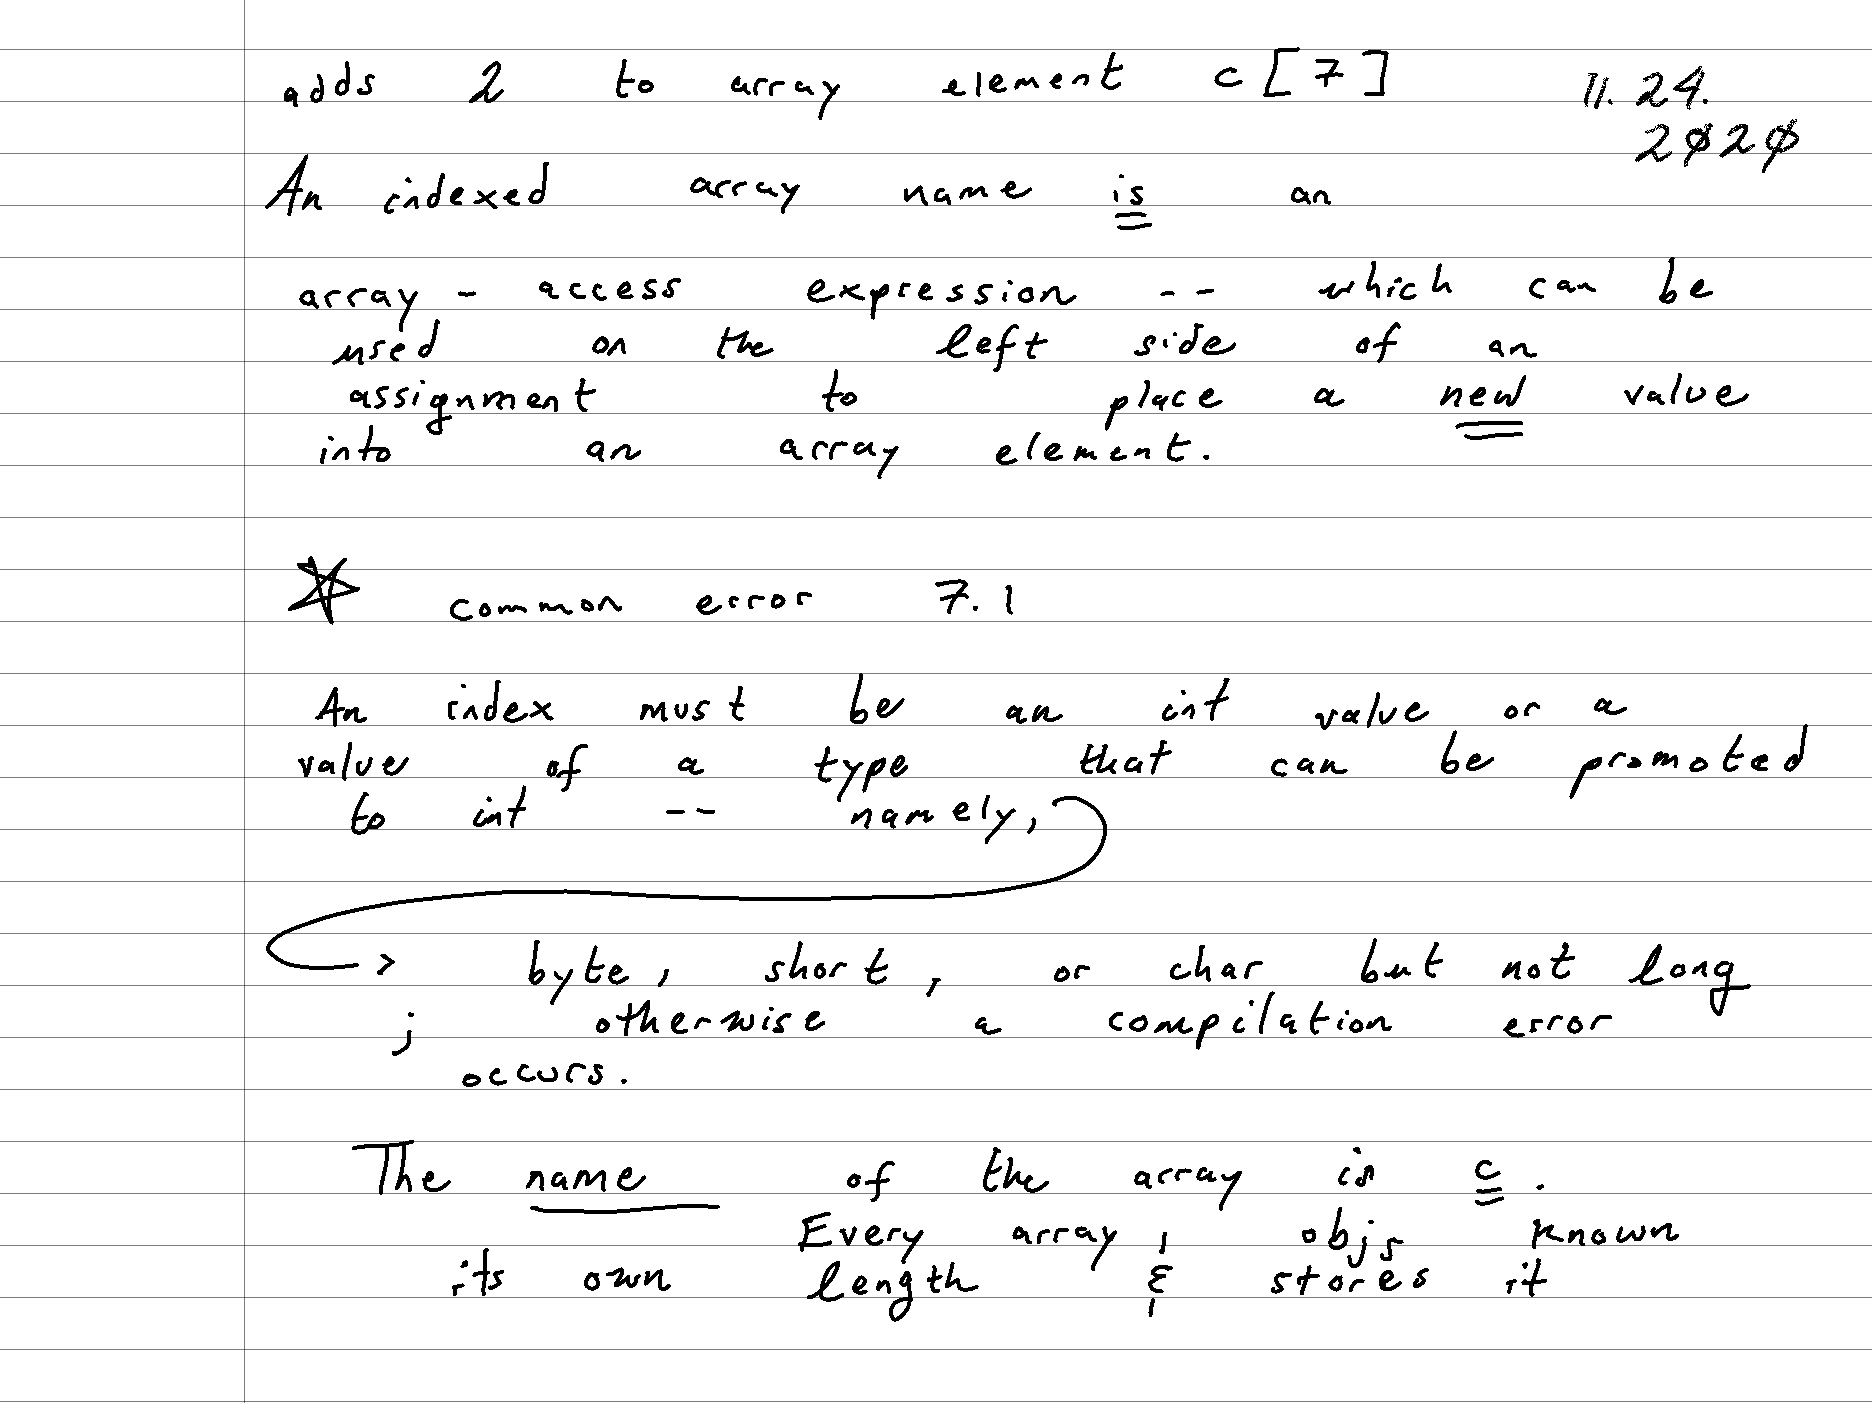 adds 2 to array element c[7]
11. 24.
2020
An indexed array name is an
array - access expression -- which can be
used on the left side of an
assignment to place a new value
into an array element.
common error 7.1
An index must be an int value or a
value of a type that can be promoted
to int -- namely,
byte, short, or char but not long
; otherwise a compilation error
occurs.
The name of the array is c.
Every array objs known
its own length & stores it